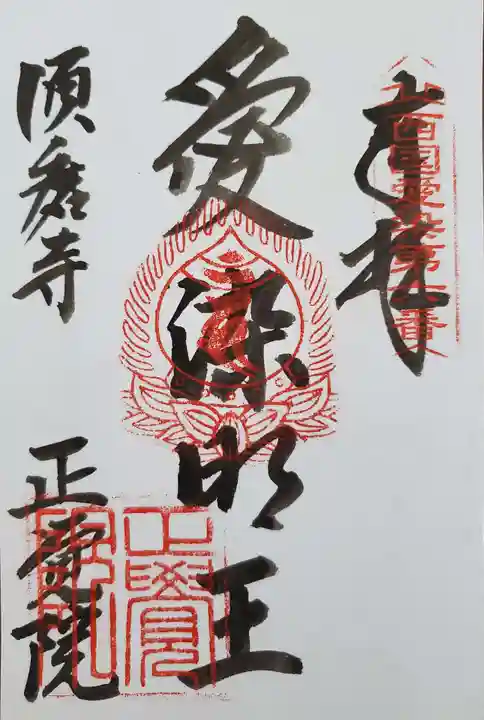 奉拝
西国愛染第十番
愛染明王
須磨寺
正覚院
正覺院